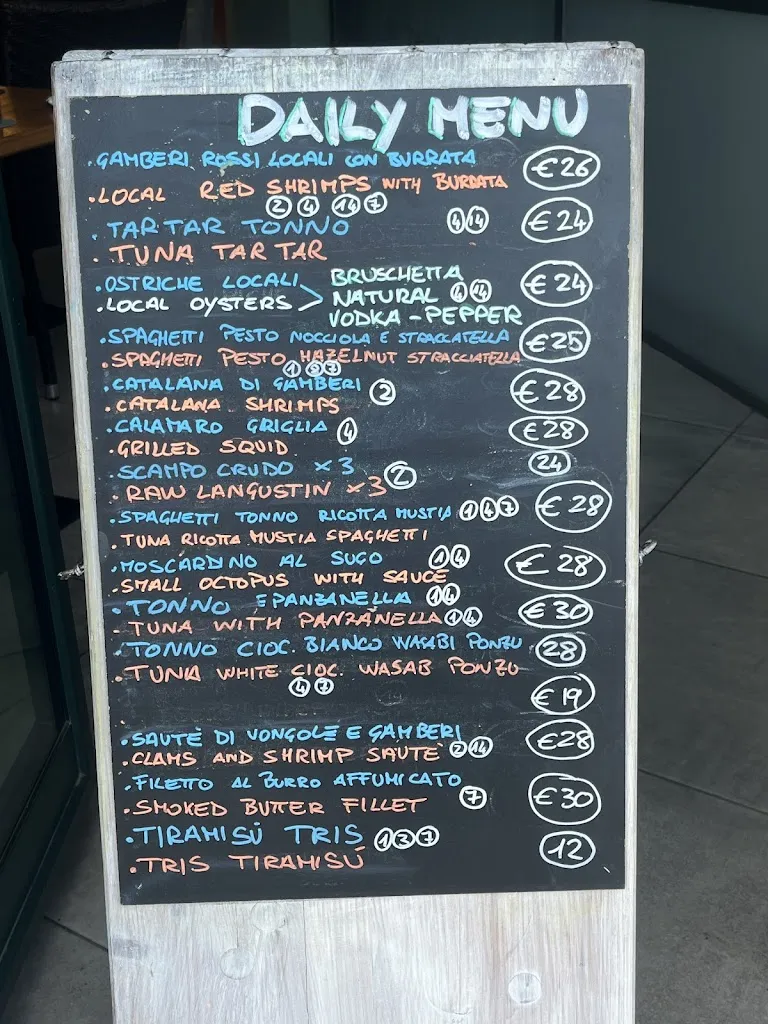 DAILY MENU
.GAMBERI ROSSI LOCALI CON BURRATA €26
.LOCAL RED SHRIMPS WITH BURRATA
2 4 14 7
.TARTAR TONNO 4 14 €24
.TUNA TARTAR
.OSTRICHE LOCALI BRUSCHETTA €24
.LOCAL OYSTERS > NATURAL 4 14
VODKA - PEPPER
.SPAGHETTI PESTO NOCCIOLA E STRACCATELLA €25
.SPAGHETTI PESTO HAZELNUT STRACCIATELLA
1 8 7
.CATALANA DI GAMBERI 2 €28
.CATALANA SHRIMPS
.CALAMARO GRIGLIA 4 €28
.GRILLED SQUID
.SCAMPO CRUDO x3 2 24
.RAW LANGUSTIN x3
.SPAGHETTI TONNO RICOTTA MUSTIA 1 4 7 €28
.TUNA RICOTTA MUSTIA SPAGHETTI
.MOSCARDINO AL SUGO 1 4 €28
.SMALL OCTOPUS WITH SAUCE
.TONNO E PANZANELLA 1 4 €30
.TUNA WITH PANZANELLA 1 4
.TONNO CIOC. BIANCO WASABI PONZU 28
.TUNA WHITE CIOC. WASAB PONZU
4 7 €19
.SAUTÈ DI VONGOLE E GAMBERI €28
.CLAMS AND SHRIMP SAUTÈ 2 14
.FILETTO AL BURRO AFFUMICATO
.SMOKED BUTTER FILLET 7 €30
.TIRAMISÚ TRIS 1 3 7 12
.TRIS TIRAMISÚ